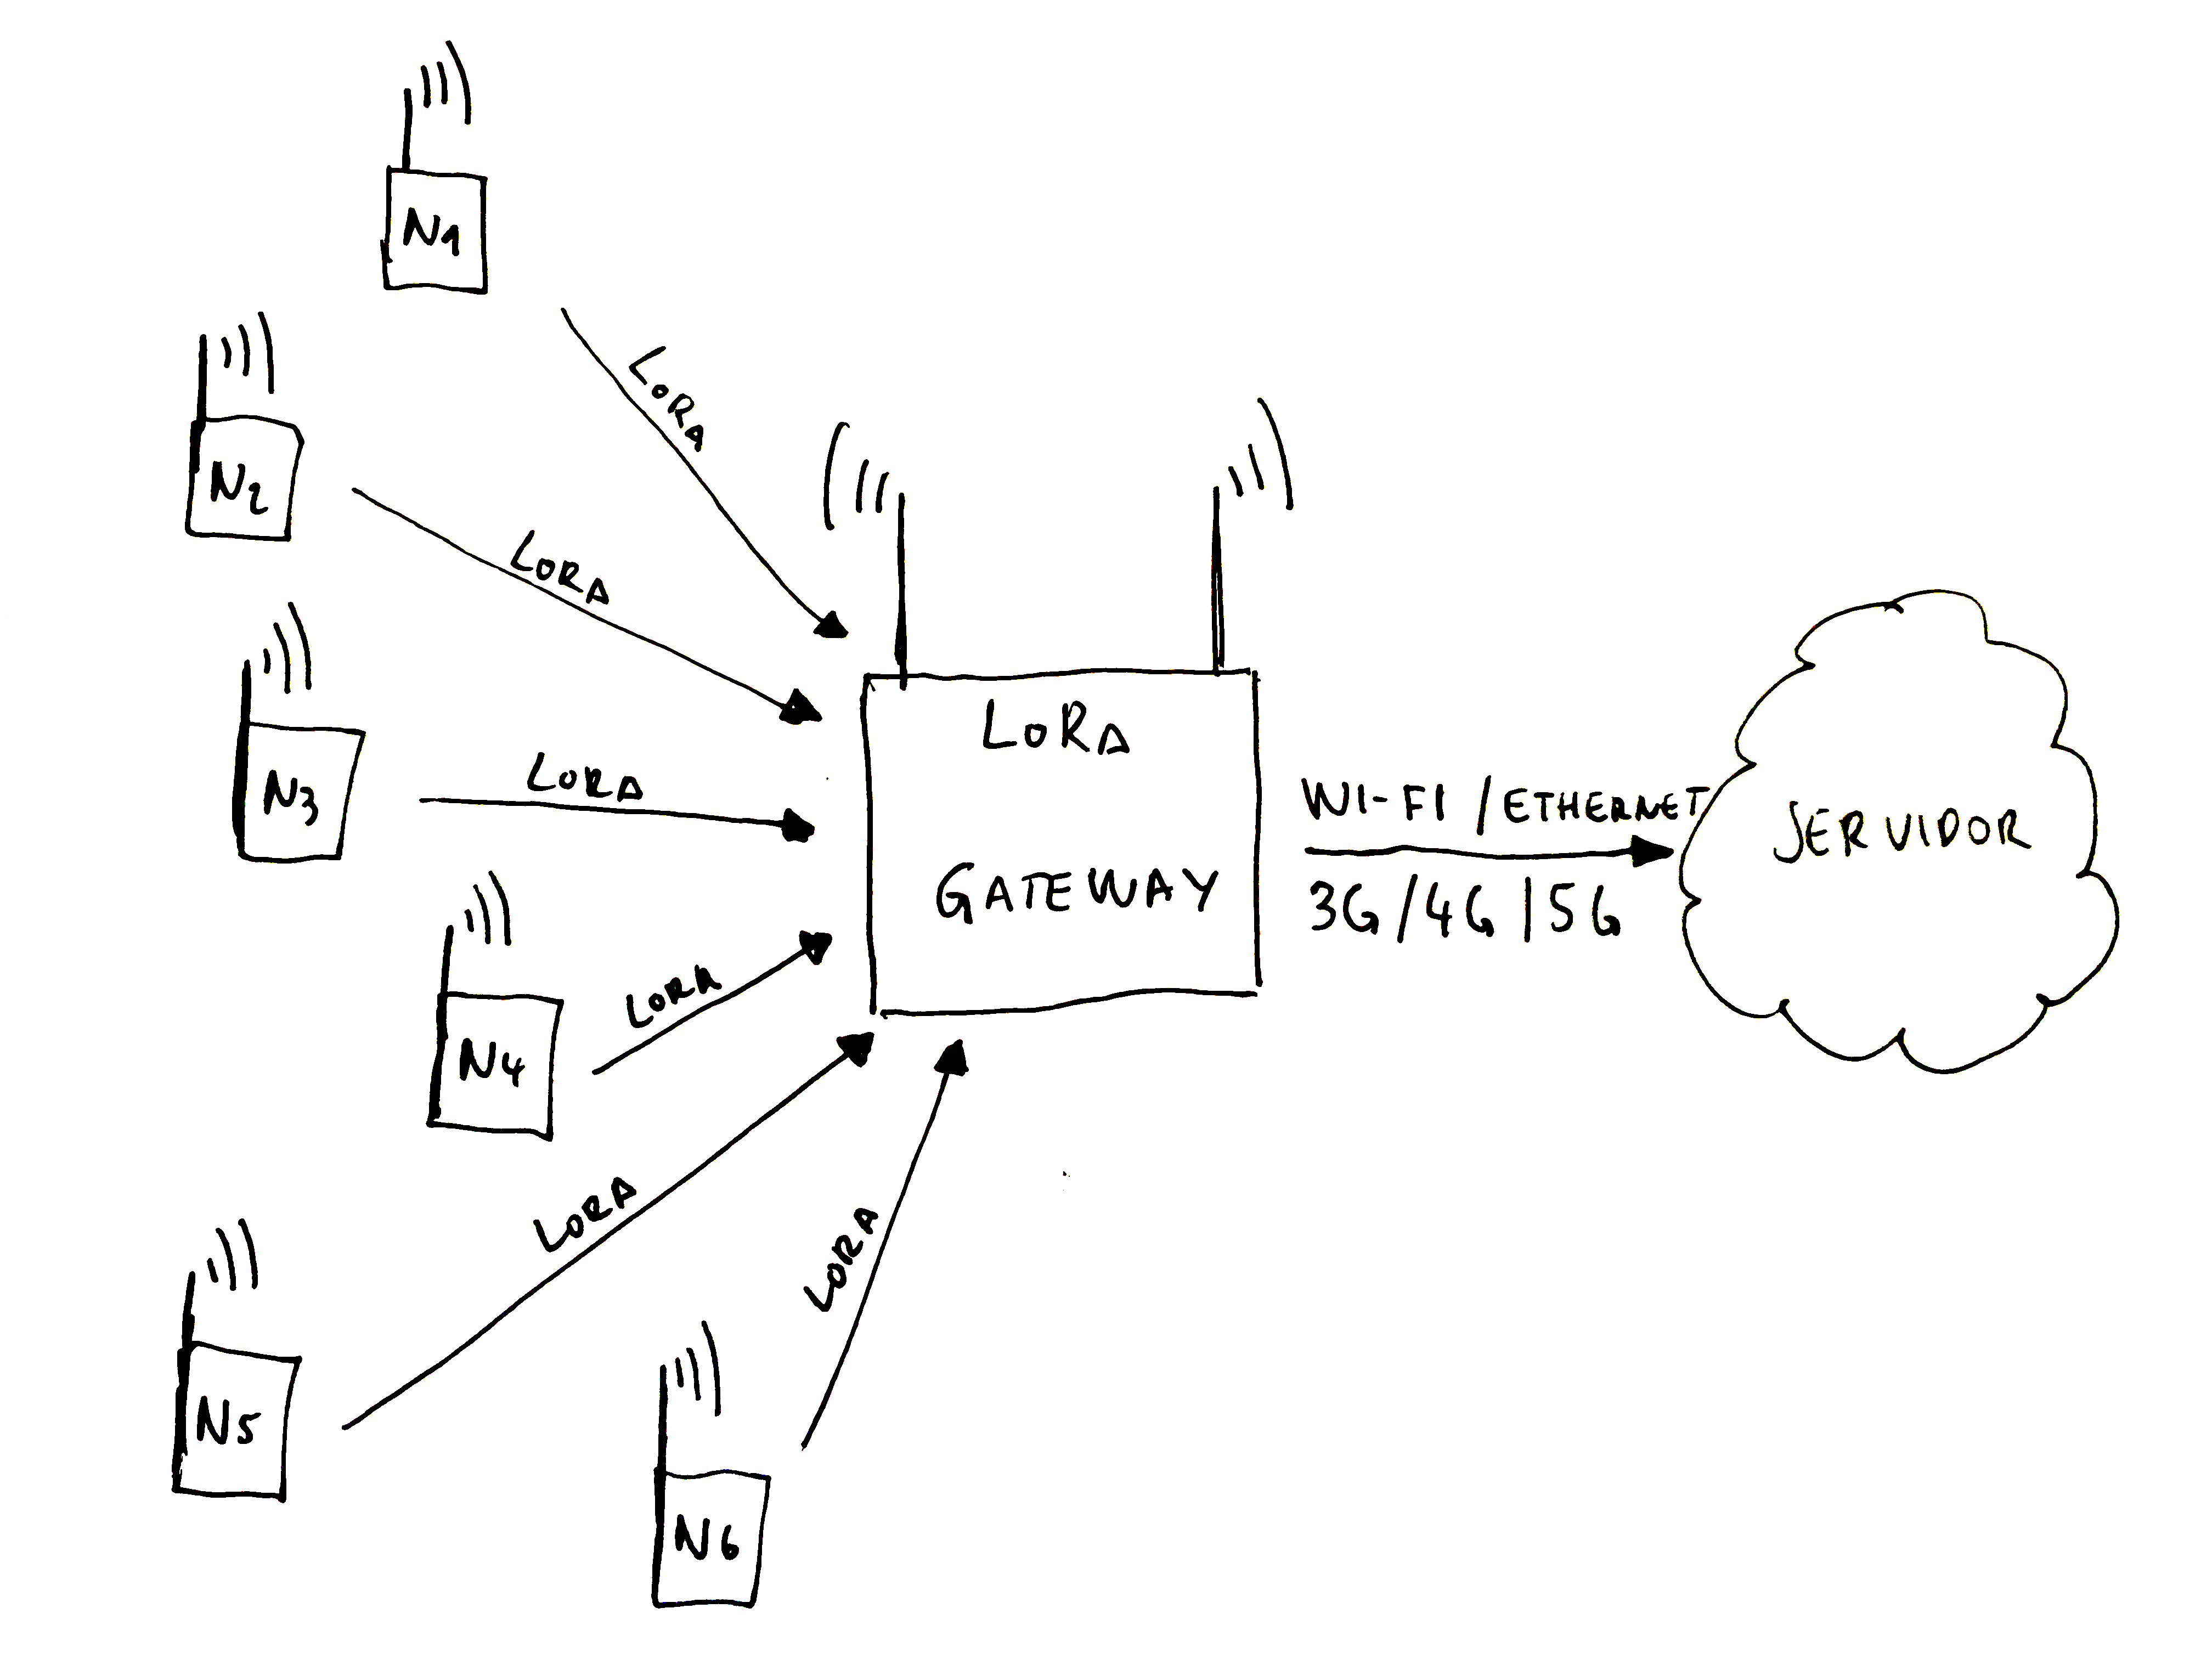 N1
LORA
N2
LORA
N3
LORA
N4
LORA
N5
LORA
N6
LORA
LORA
GATEWAY
WI-FI / ETHERNET
3G/4G|5G
SERVIDOR